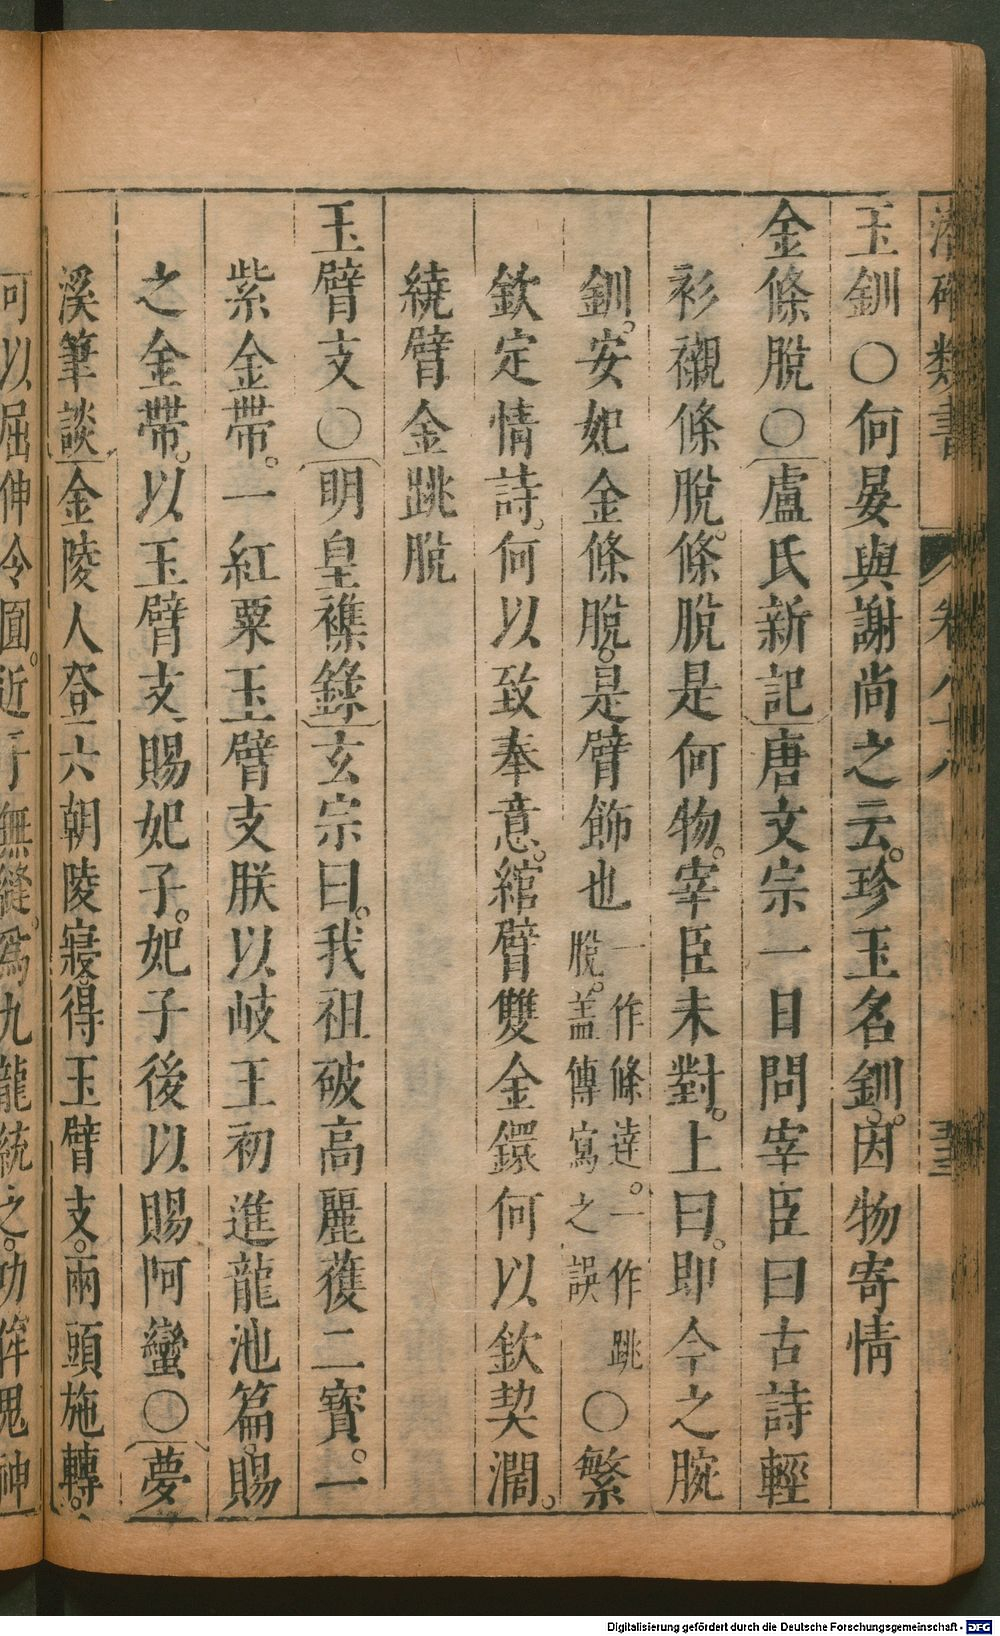 潛確類書 卷八十八
玉釧○何晏與謝尚之云。珍玉名釧。因物寄情
金條脫○盧氏新記唐文宗一日問宰臣曰古詩輕
衫襯條脫。條脫是何物。宰臣未對。上曰。即今之腕
釧。安妃金條脫。是臂飾也一作條達。一作跳脫。盖傳寫之誤○繁
欽定情詩。何以致奉意。綰臂雙金鐶何以欽契濶。
繞臂金跳脫
玉臂支○明皇襍錄玄宗曰。我祖破高麗蒦二寳。一
紫金帶。一紅粟玉臂支朕以岐王初進龍池篇。賜
之金帶。以玉臂支賜妃子。妃子後以賜阿蠻○夢
溪筆談金陵人登六朝陵寢得玉臂支。兩頭施轉。
可以屈伸令圓。近于無縫。爲九龍統之。功侔鬼神
Digitalisierung gefördert durch die Deutsche Forschungsgemeinschaft - DFG